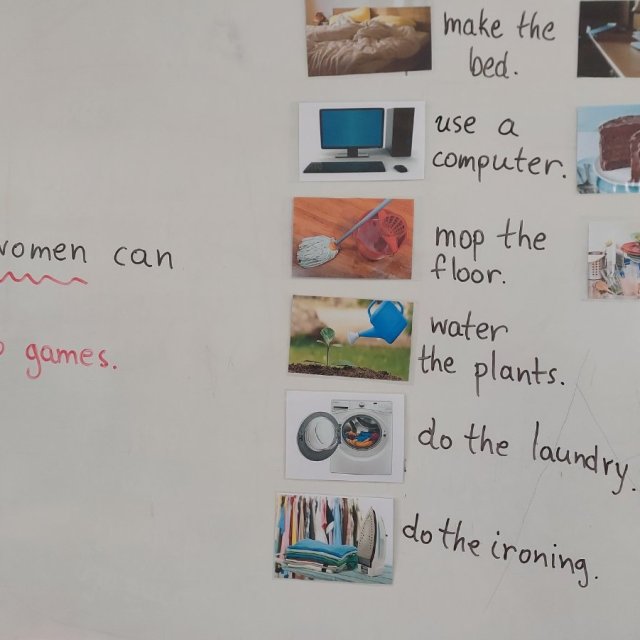 women can
games.
make the
bed.
use a
computer.
mop the
floor.
water
the plants.
do the laundry.
do the ironing.